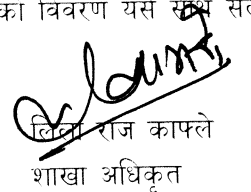 का विवरण यस साथ
लिला राज काफ्ले
शाखा अधिकृत